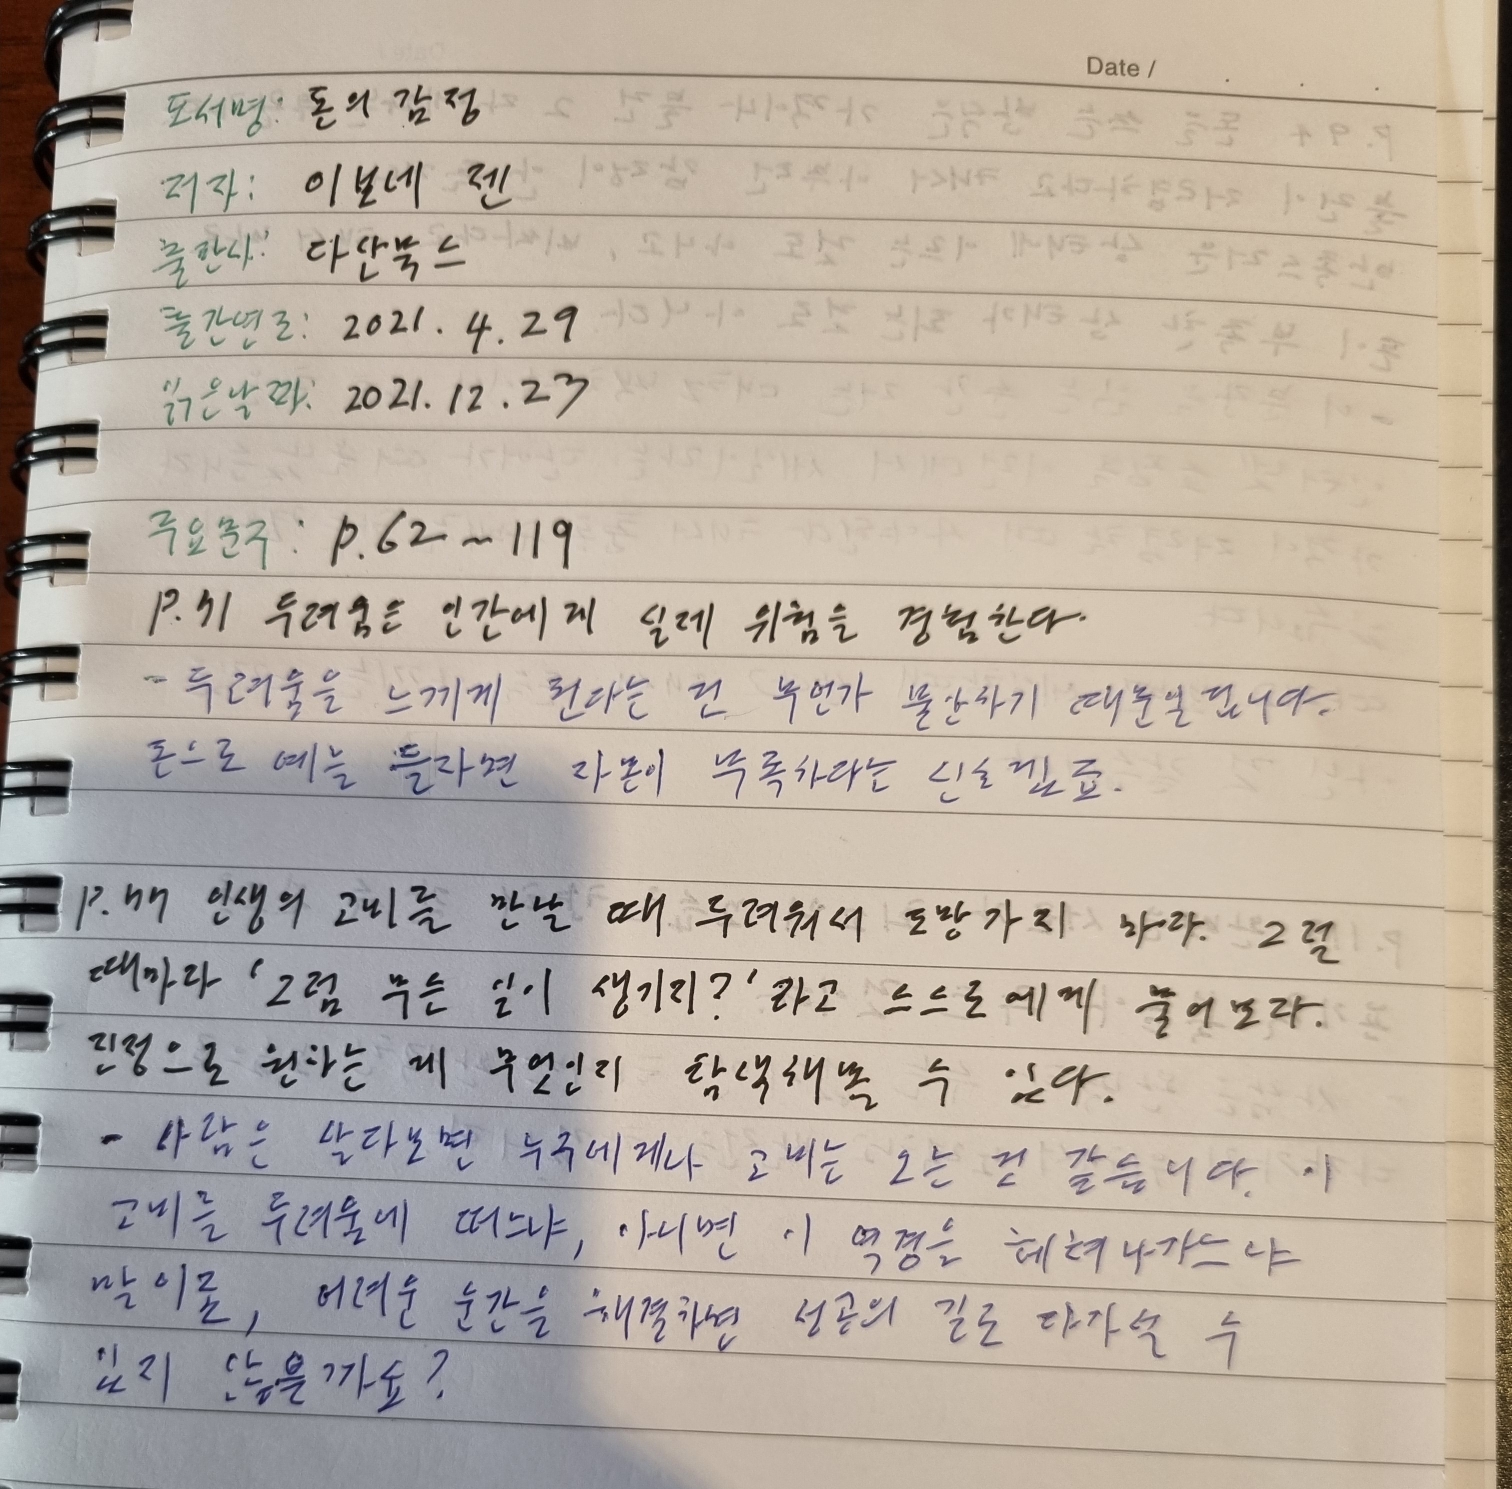 Date /
도서명: 돈의 감정
저자: 이보네 젠
출판사: 다산북스
출간연도: 2021. 4. 29
읽은날짜: 2021. 12. 23
주요문구: p.62~119
P.71 두려움은 인간에게 실제 위험을 경험한다.
- 두려움을 느끼게 된다는 건 무언가 불안하기 때문일겁니다.
돈으로 예를 들자면 자본이 부족하다는 신호겠죠.
P.77 인생의 고비를 만날 때 두려워서 도망가지 마라. 그럴
때마라 '그럼 무슨 일이 생기지?' 라고 스스로에게 물어보라.
진정으로 원하는 게 무엇인지 탐색해볼 수 있다.
- 사람은 살다보면 누구에게나 고비는 오는 건 같습니다. 이
고비를 두려움에 떠느냐, 아니면 이 역경을 헤쳐나가느냐
말이죠, 어려운 순간을 해결하면 성공의 길로 다가설 수
있지 않을까요?